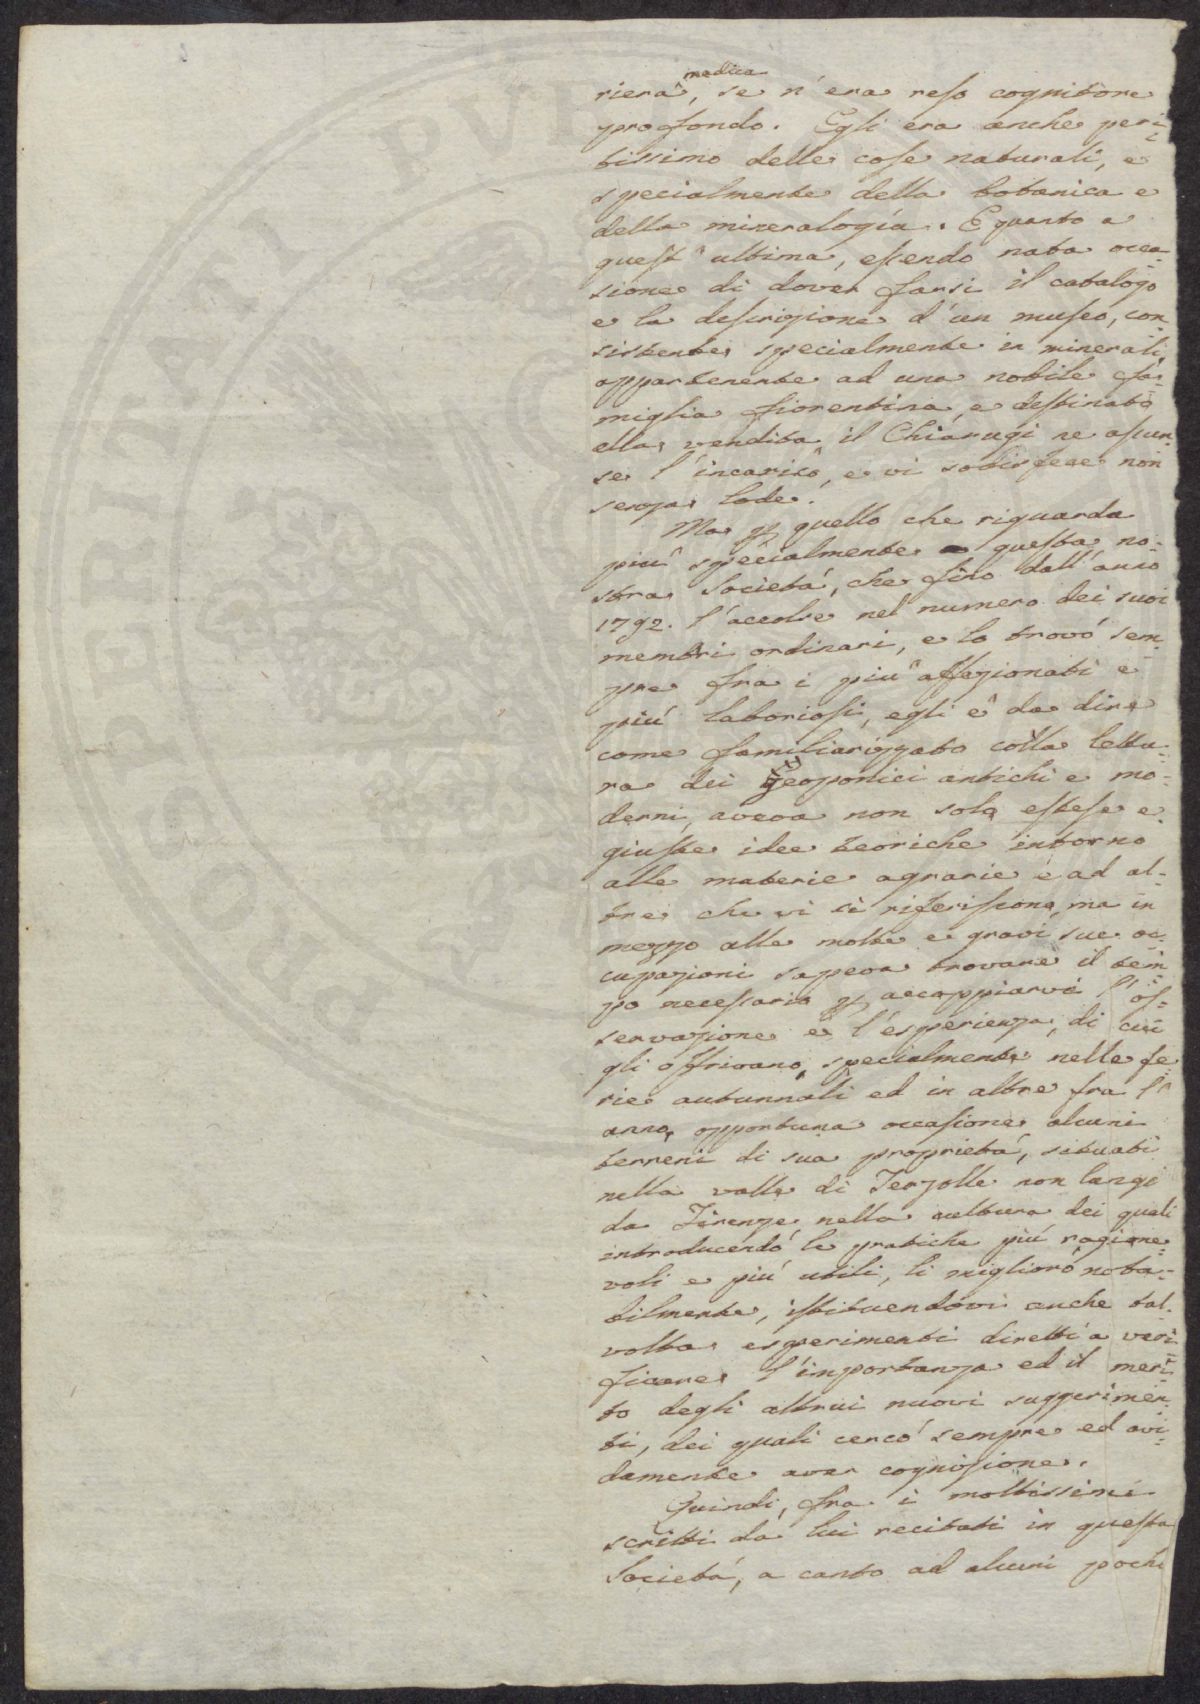 medica
riera, se n'era reso cognitore
profondo. Egli era anche peri-
tissimo delle cose naturali, e
specialmente della botanica e
della mineralogía. E quanto a
quest'ultima, essendo nata occa-
sione di dover farsi il catalogo
e la descrizione d'un museo, con
sistente specialmente in minerali,
appartenente ad una nobile fa-
miglia fiorentina, e destinato
alla vendita, il Chiarugi ne assun-
se l'incarico, e vi sodisfece non
senza lode.
Ma p quello che riguarda
più specialmente questa no-
stra Società, che fino dall'anno
1792. l'accolse nel numero dei suoi
membri ordinari, e lo trovò sem-
pre fra i più affezionati e
più laboriosi, egli è da dire
come familiarizzato colla lettu-
ra dei Geoponici antichi e mo-
derni, aveva non solo estese e
giuste idee teoriche intorno
alle materie agrarie e ad al-
tre che vi si riferiscono, ma in
mezzo alle molte e gravi sue oc-
cupazioni sapeva trovare il tem
po necessario p accoppiarvi l'os-
servazione e l'esperienza, di cui
gli offrivano, specialmente nelle fe
rie autunnali ed in altre fra l'
anno, opportuna occasione alcuni
terreni di sua proprietà, situati
nella valle di Terzolle non lungi
da Firenze, nella cultura dei quali
introducendo le pratiche più ragione-
voli e più utili, li migliorò nota-
bilmente, istituendovi anche tal-
volta esperimenti diretti a veri-
ficare l'importanza ed il meri-
to degli altrui nuovi suggerimen-
ti, dei quali cercò sempre ed avi-
damente aver cognizione.
Quindi, fra i moltissimi
scritti da lui recitati in questa
Società, a canto ad alcuni pochi